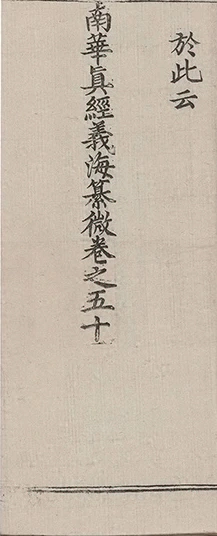 於此云
南華眞經義海纂微卷之五十